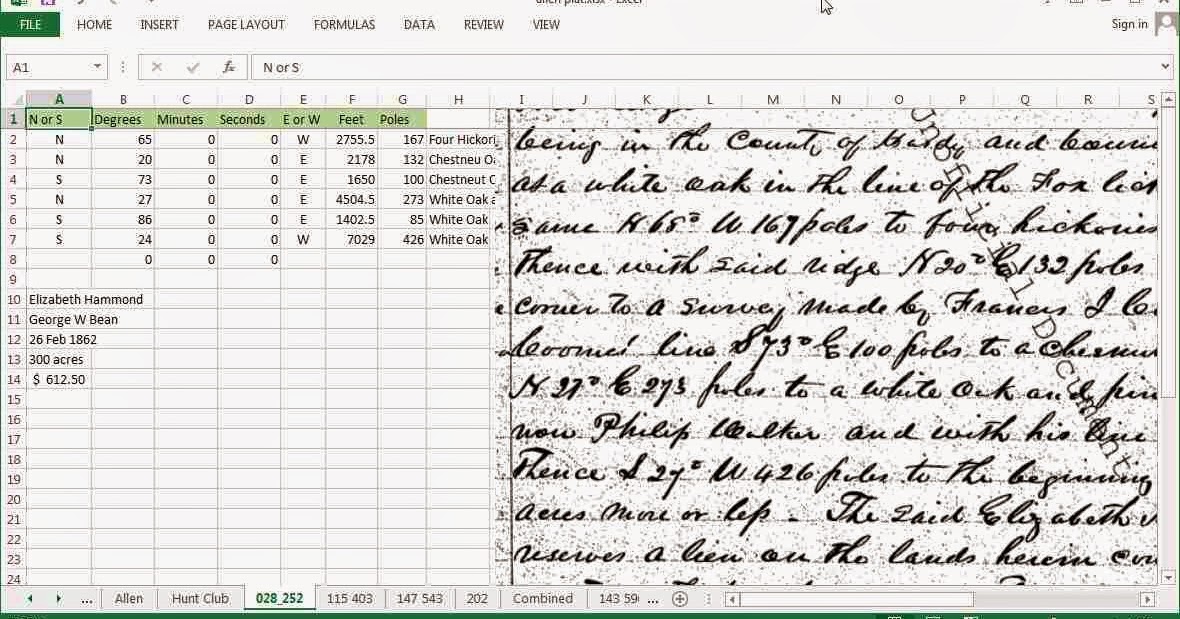 allen plat.xlsx - Excel
FILE HOME INSERT PAGE LAYOUT FORMULAS DATA REVIEW VIEW Sign in
A1 fx N or S
A B C D E F G H I J K L M N O P Q R S
1 N or S Degrees Minutes Seconds E or W Feet Poles
2 N 65 0 0 W 2755.5 167 Four Hickori
3 N 20 0 0 E 2178 132 Chestneu O
4 S 73 0 0 E 1650 100 Chestneut C
5 N 27 0 0 E 4504.5 273 White Oak a
6 S 86 0 0 E 1402.5 85 White Oak
7 S 24 0 0 W 7029 426 White Oak
8 0 0 0
9
10 Elizabeth Hammond
11 George W Bean
12 26 Feb 1862
13 300 acres
14 $ 612.50
15
16
17
18
19
20
21
22
23
24
being in the County of Hardy and boun
at a white oak in the line of the Fox
same N 65° W 167 poles to four hickories
Thence with said ridge N 20° E 132 poles
corner to a survey made by Francis
line S 73° E 100 poles to a Chesnu
N 27° E 273 poles to a white Oak and pin
now Philip Walker and with his line
Thence S 24° W 426 poles to the beginning
acres more or less. The said Elizabeth
reserves a lien on the lands herein con
Unofficial Document
... Allen Hunt Club 028_252 115 403 147 543 202 Combined 143 59 ...